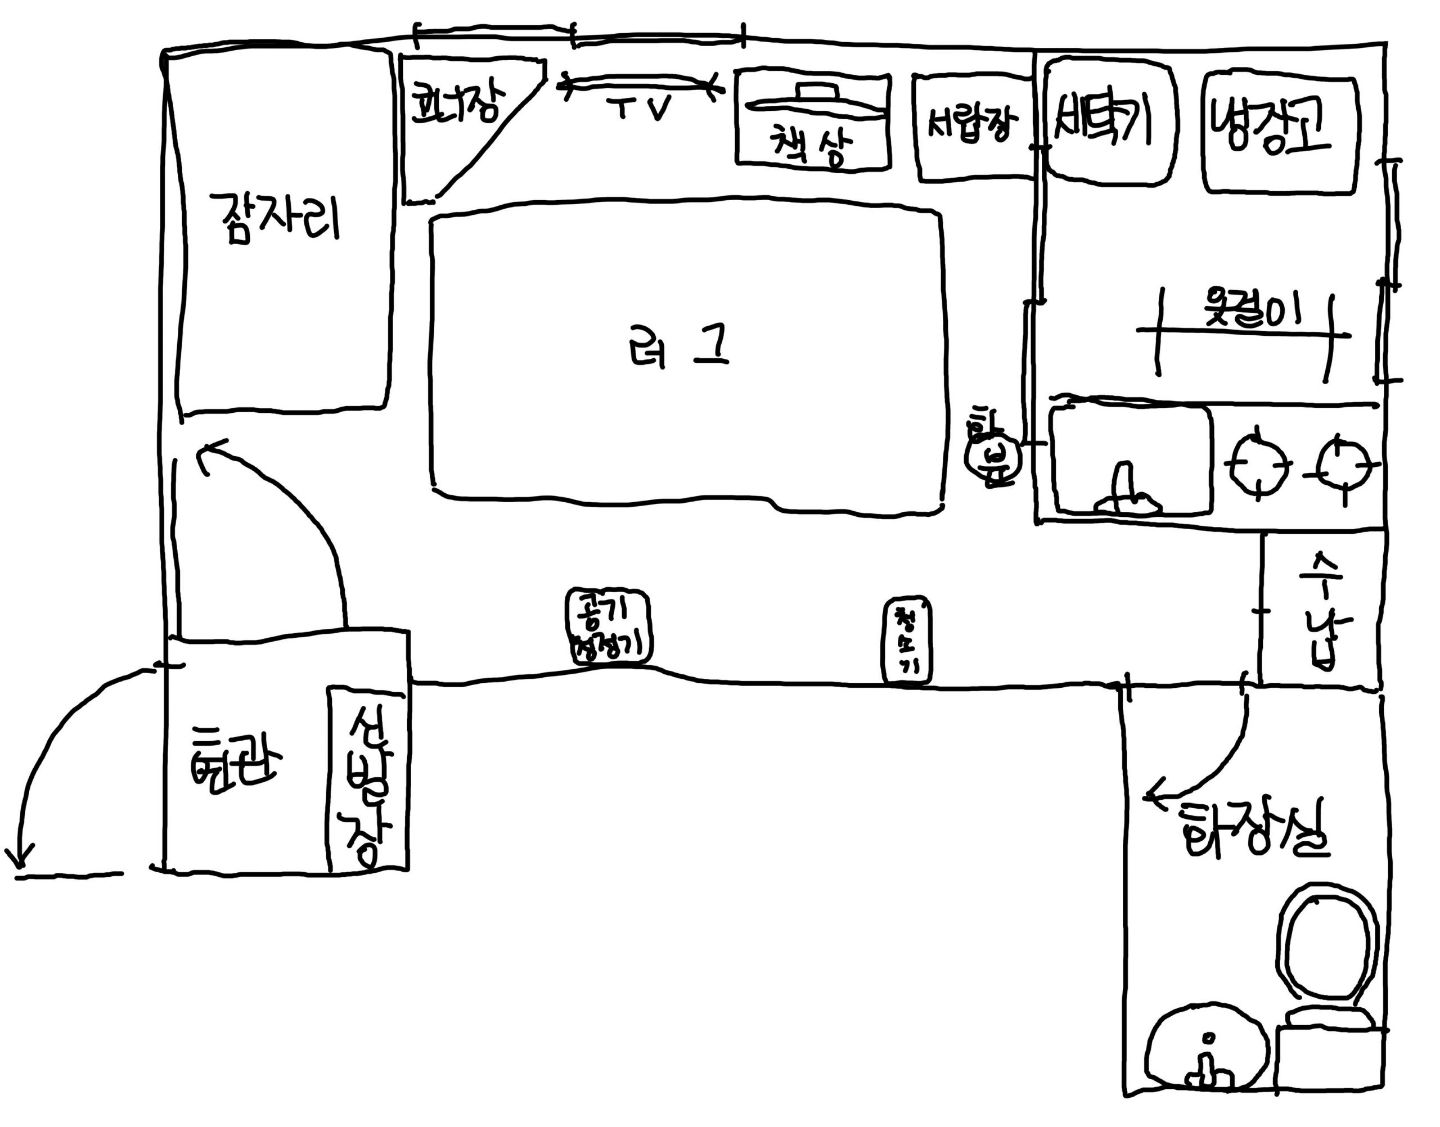 코너장
TV
책상
서랍장
세탁기
냉장고
잠자리
러그
옷걸이
화분
공기
청정기
청소기
수납
현관
신발장
화장실